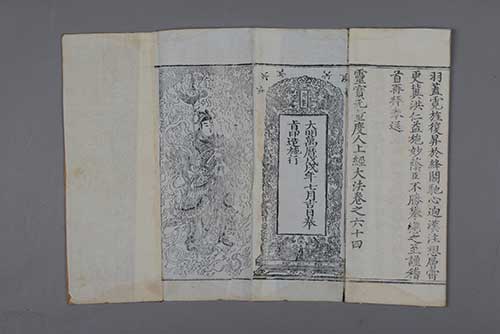 羽蓋霓旌復昇於絳闕馳心迥漢注想層霄
更冀洪仁益施妙蔭臣不勝攀戀之至謹稽
首再拜奉送
靈寳无量度人上經大法卷之六十四
大明萬曆戊戌年七月吉日奉
旨印造施行